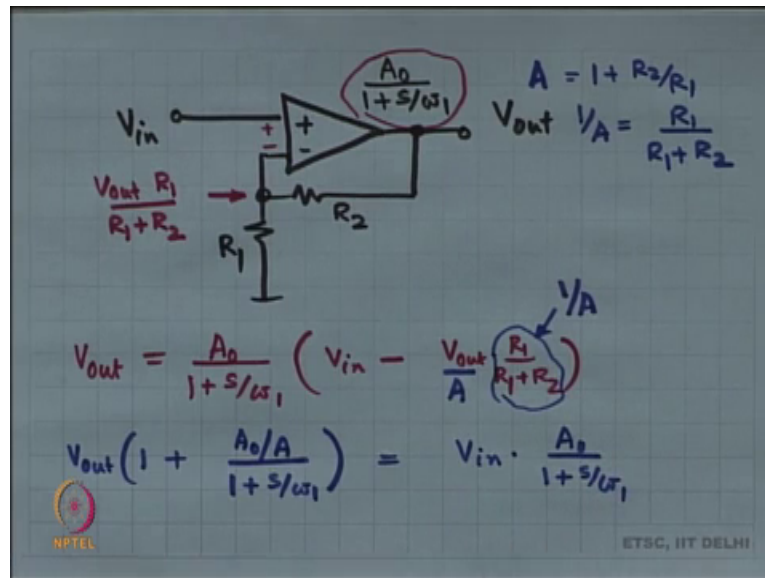 A₀ / (1 + s/ω₁)
A = 1 + R₂/R₁
V_in
+
-
+
-
V_out
1/A = R₁ / (R₁ + R₂)
V_out R₁ / (R₁ + R₂)
R₂
R₁
1/A
V_out = A₀ / (1 + s/ω₁) (V_in - V_out / A R₁ / (R₁ + R₂))
V_out (1 + A₀/A / (1 + s/ω₁)) = V_in · A₀ / (1 + s/ω₁)
NPTEL
ETSC, IIT DELHI